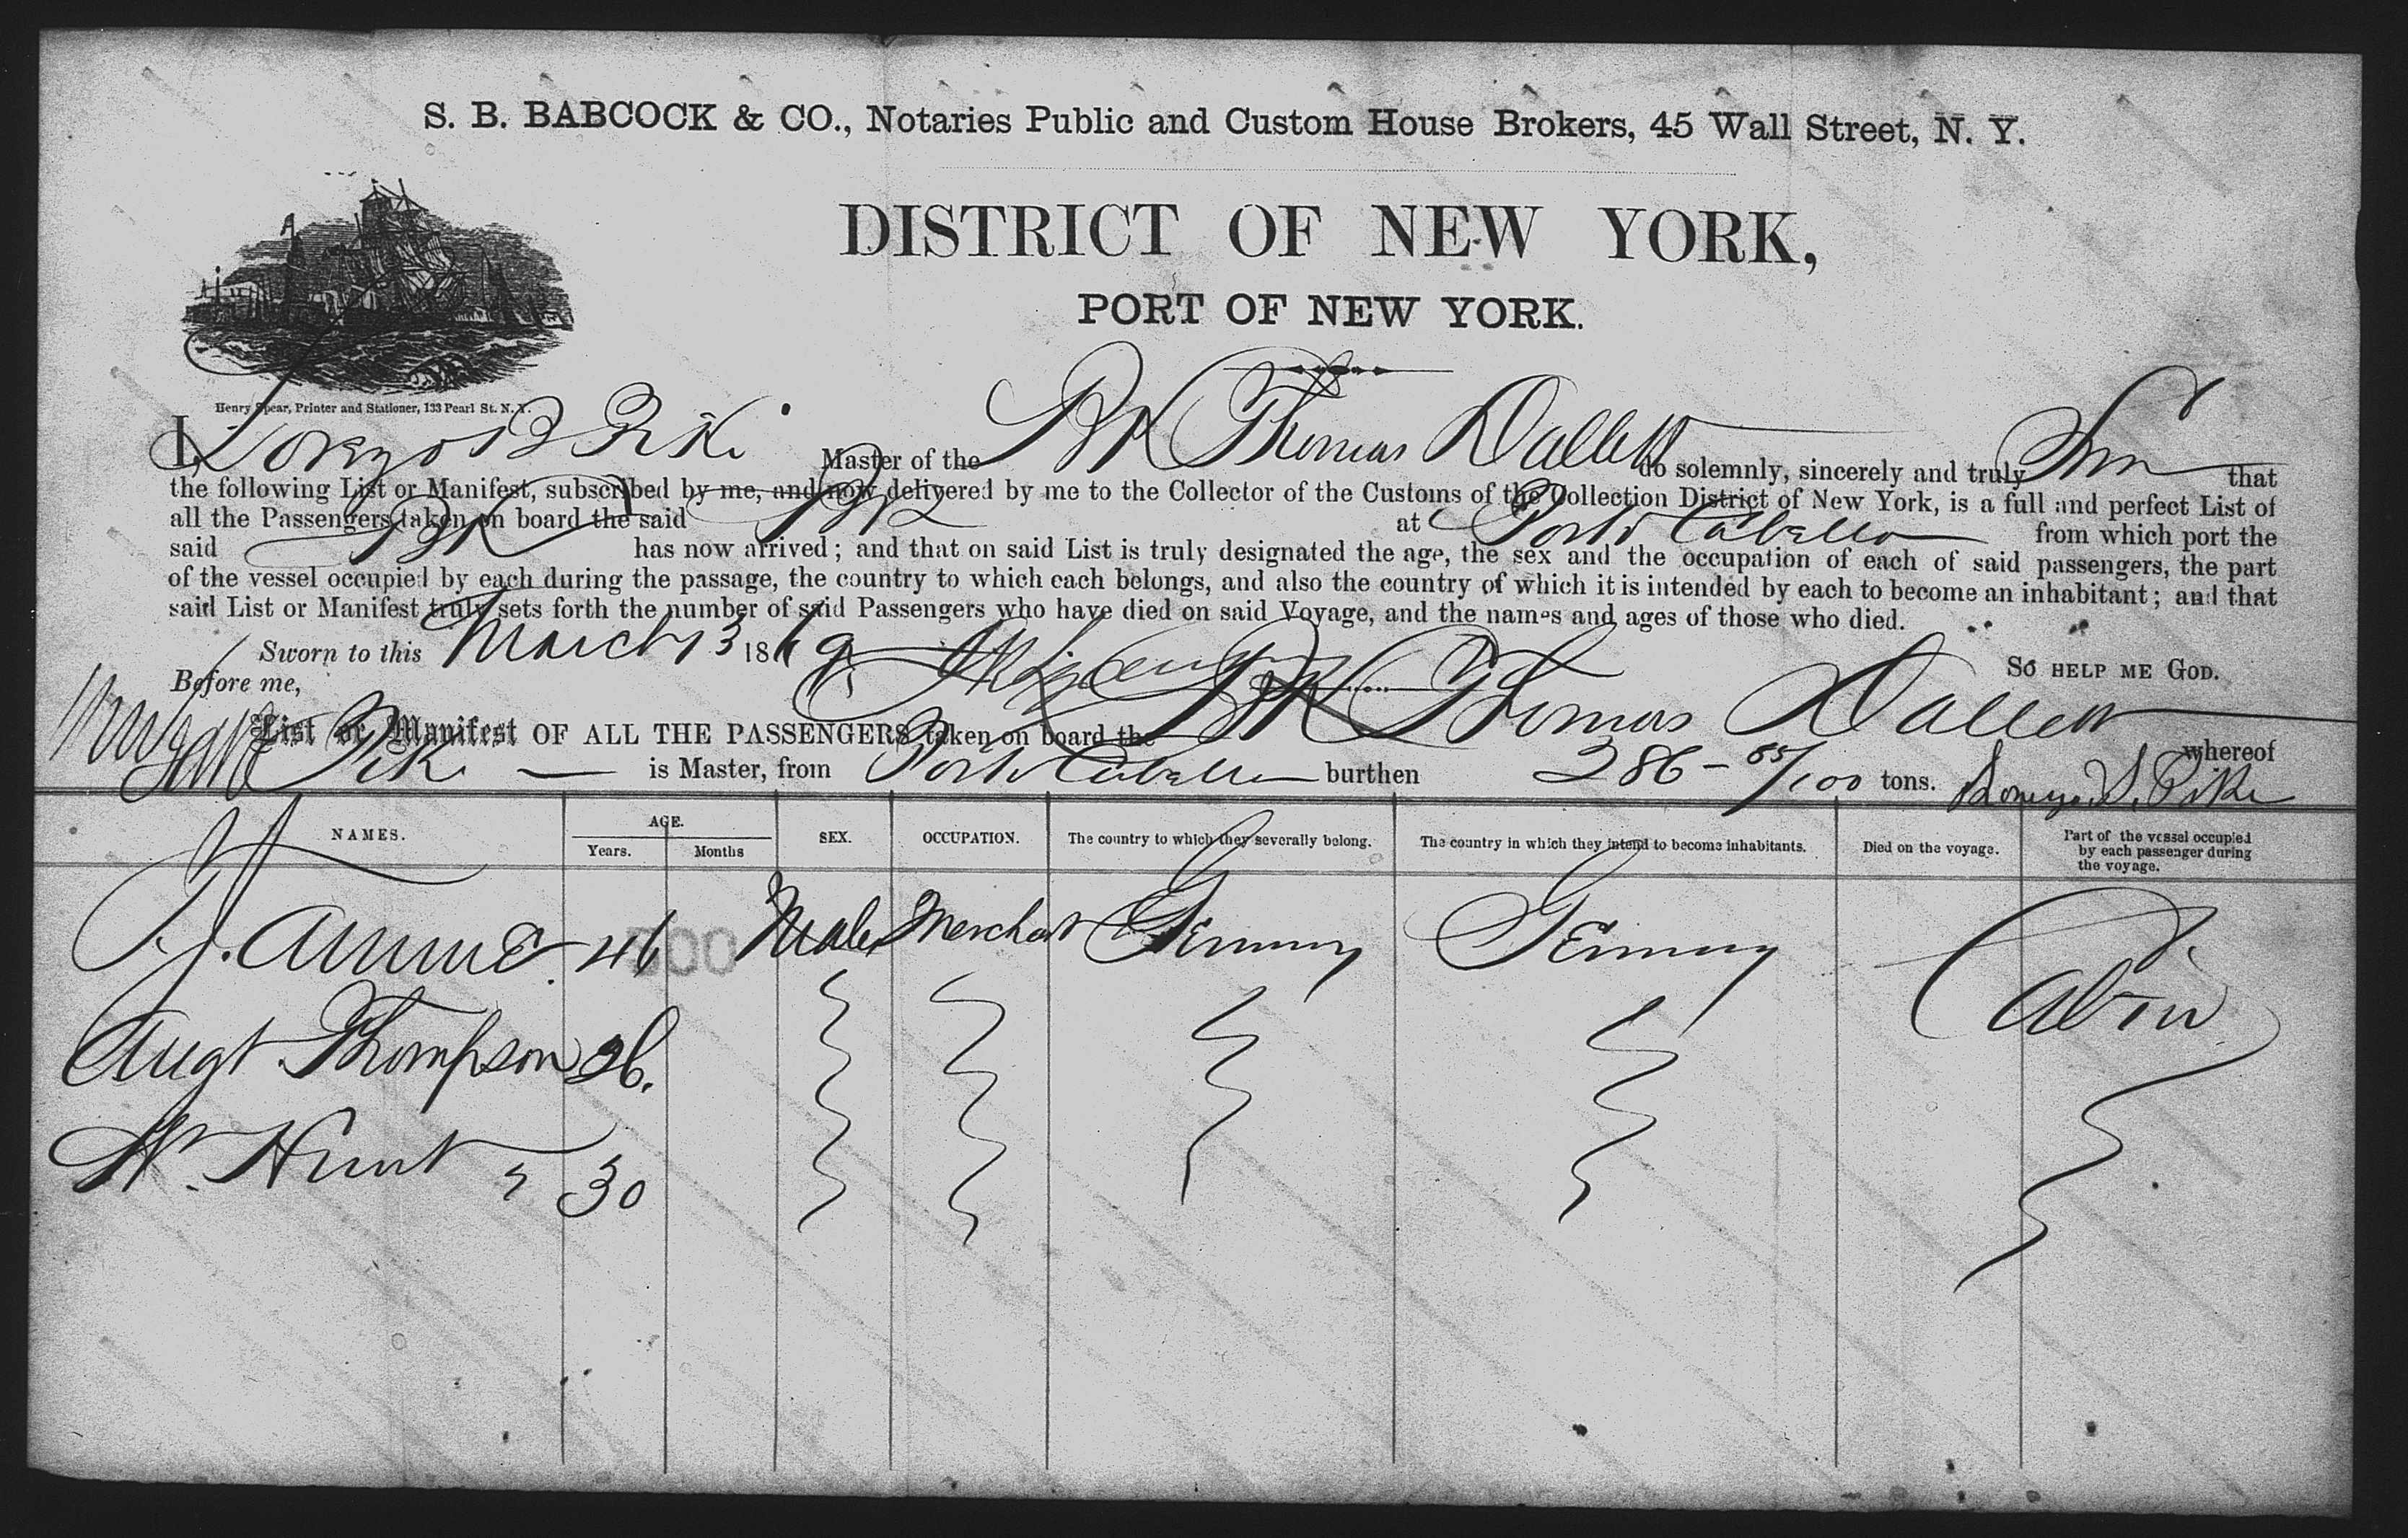 S. B. BABCOCK & CO., Notaries Public and Custom House Brokers, 45 Wall Street, N. Y.
DISTRICT OF NEW YORK,
PORT OF NEW YORK.
Henry Spear, Printer and Stationer, 133 Pearl St. N. Y.
I, Master of the Bk Thomas Dallett do solemnly, sincerely and truly that
the following List or Manifest, subscribed by me, and now delivered by me to the Collector of the Customs of the Collection District of New York, is a full and perfect List of
all the Passengers taken on board the said Bk at Porto Cabello from which port the
said Bk has now arrived; and that on said List is truly designated the age, the sex and the occupation of each of said passengers, the part
of the vessel occupied by each during the passage, the country to which each belongs, and also the country of which it is intended by each to become an inhabitant; and that
said List or Manifest truly sets forth the number of said Passengers who have died on said Voyage, and the names and ages of those who died.
Sworn to this March 13 1869
So HELP ME GOD.
Before me,
List or Manifest OF ALL THE PASSENGERS taken on board the Bk Thomas Dallett whereof
Pike is Master, from Porto Cabello burthen 286-85/100 tons.
NAMES. AGE. Years. Months SEX. OCCUPATION. The country to which they severally belong. The country in which they intend to become inhabitants. Died on the voyage. Part of the vessel occupied by each passenger during the voyage.
46 Male Merchant Germny Germny Cabin
Augt Thompson 26.
Hunt 30